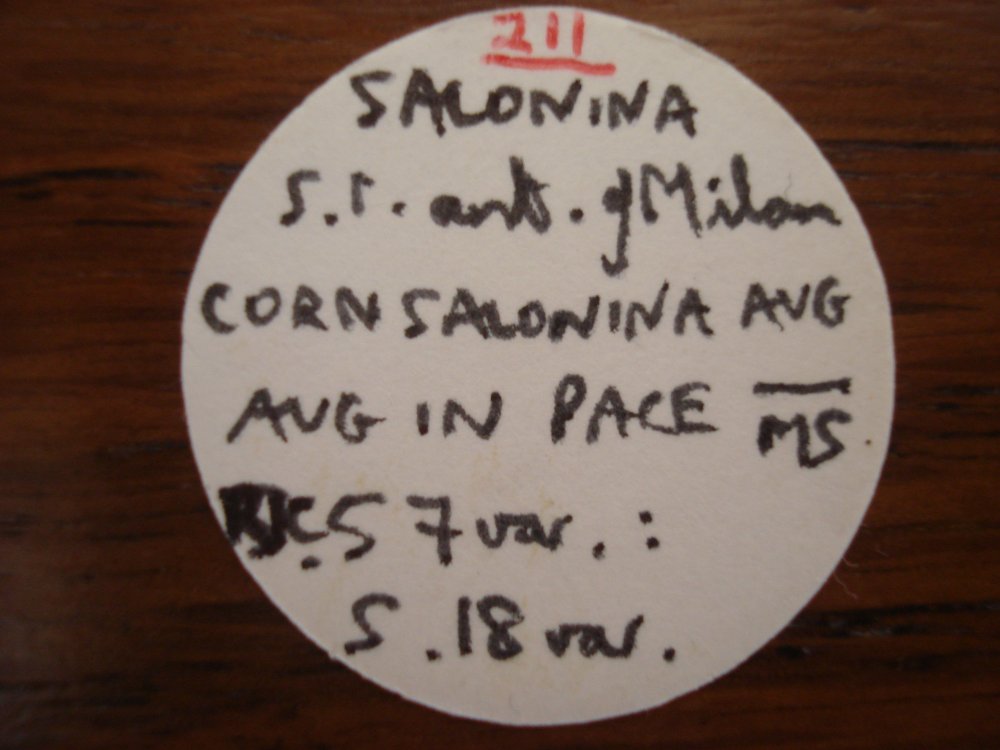 211
SALONINA
S.r. ant. of Milan
CORN SALONINA AVG
AVG IN PACE MS
RIC.57 var. :
S.18 var.